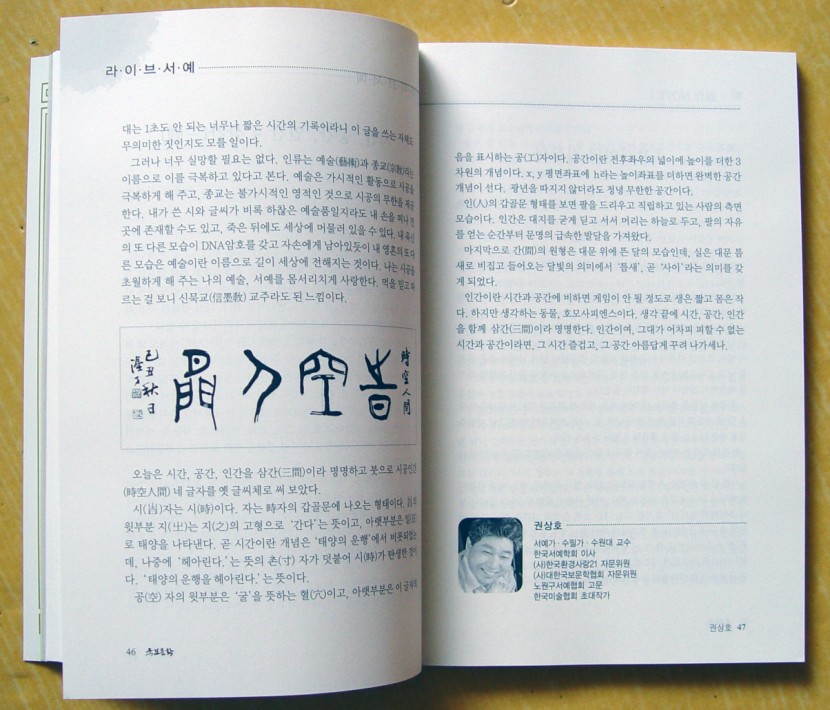 라·이·브·서·예
대는 1초도 안 되는 너무나 짧은 시간의 기록이라니 이 글을 쓰는 자체도
무의미한 짓인지도 모를 일이다.
그러나 너무 실망할 필요는 없다. 인류는 예술(藝術)과 종교(宗敎)라는
이름으로 이를 극복하고 있다고 본다. 예술은 가시적인 활동으로 시공을
극복하게 해 주고, 종교는 불가시적인 영적인 것으로 시공의 무한을 제공
한다. 내가 쓴 시와 글씨가 비록 하찮은 예술품일지라도 내 손을 떠나 먼
곳에 존재할 수도 있고, 죽은 뒤에도 세상에 머물러 있을 수 있다. 내 육신
의 또 다른 모습이 DNA암호를 갖고 자손에게 남아있듯이 내 영혼의 또 다
른 모습은 예술이란 이름으로 길이 세상에 전해지는 것이다. 나는 시공을
초월하게 해 주는 나의 예술, 서예를 몸서리치게 사랑한다. 먹을 믿고 따
르는 걸 보니 신묵교(信墨敎) 교주라도 된 느낌이다.
時空人間
己丑秋日
오늘은 시간, 공간, 인간을 삼간(三間)이라 명명하고 붓으로 시공인간
(時空人間) 네 글자를 옛 글씨체로 써 보았다.
시(旹)자는 시(時)이다. 자는 時자의 갑골문에 나오는 형태이다.
윗부분 지(㞢)는 지(之)의 고형으로 '간다'는 뜻이고, 아랫부분은 일(日)
로 태양을 나타낸다. 곧 시간이란 개념은 '태양의 운행'에서 비롯되었는
데, 나중에 '헤아린다.'는 뜻의 촌(寸) 자가 덧붙어 시(時)가 탄생한 것이
다. '태양의 운행을 헤아린다.'는 뜻이다.
공(空) 자의 윗부분은 '굴'을 뜻하는 혈(穴)이고, 아랫부분은 이 글자의
46
음을 표시하는 공(工)자이다. 공간이란 전후좌우의 넓이에 높이를 더한 3
차원의 개념이다. x, y 평면좌표에 h라는 높이좌표를 더하면 완벽한 공간
개념이 선다. 광년을 따지지 않더라도 정녕 무한한 공간이다.
인(人)의 갑골문 형태를 보면 팔을 드리우고 직립하고 있는 사람의 측면
모습이다. 인간은 대지를 굳게 딛고 서서 머리는 하늘로 두고, 팔의 자유
를 얻는 순간부터 문명의 급속한 발달을 가져왔다.
마지막으로 간(間)의 원형은 대문 위에 뜬 달의 모습인데, 실은 대문 틈
새로 비집고 들어오는 달빛의 의미에서 '틈새', 곧 '사이'라는 의미를 갖
게 되었다.
인간이란 시간과 공간에 비하면 게임이 안 될 정도로 생은 짧고 몸은 작
다. 하지만 생각하는 동물, 호모사피엔스이다. 생각 끝에 시간, 공간, 인간
을 함께 삼간(三間)이라 명명한다. 인간이여, 그대가 어차피 피할 수 없는
시간과 공간이라면, 그 시간 즐겁고, 그 공간 아름답게 꾸려 나가세나.
권상호
서예가 · 수필가 · 수원대 교수
한국서예학회 이사
(사)한국환경사랑21 자문위원
(사)대한국보문학협회 자문위원
노원구서예협회 고문
한국미술협회 초대작가
권상호 47